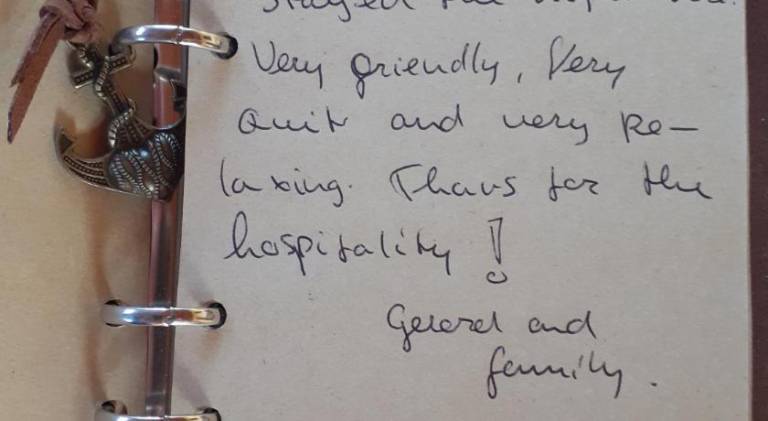 stayed the
Very friendly, Very
Quit and very re-
laxing. Thans for the
hospitality!
Gerard and
family.